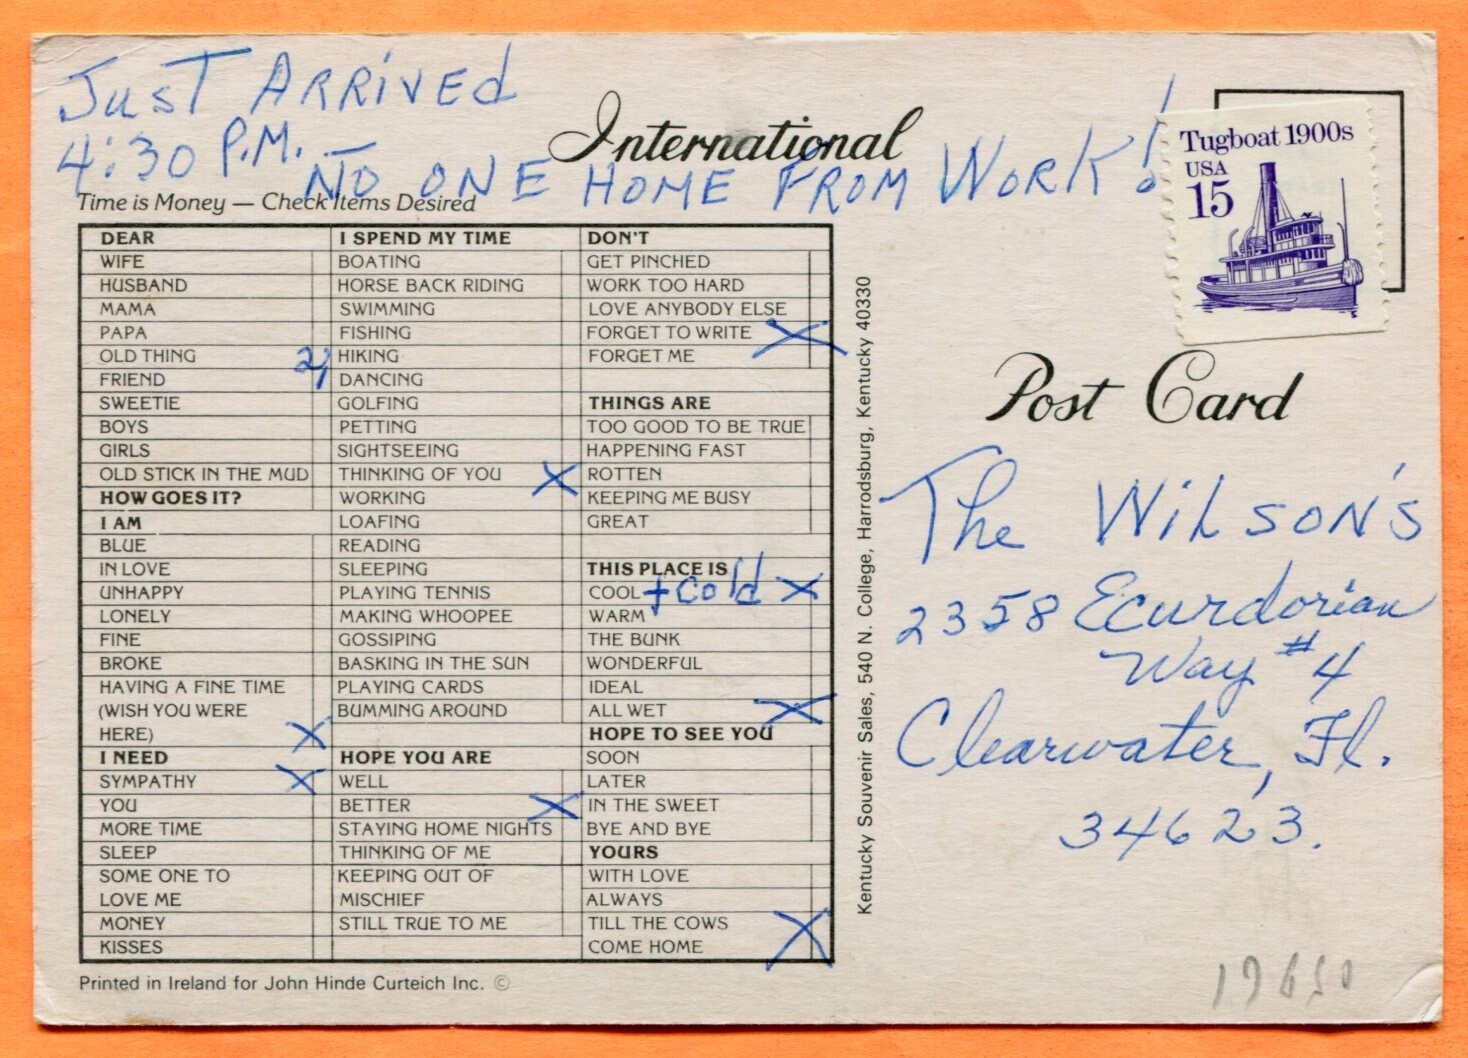 Just ARRIVED
4:30 P.M. NO ONE HOME FROM WORK!
International
Tugboat 1900s
USA
15
Time is Money — Check Items Desired
DEAR
WIFE
HUSBAND
MAMA
PAPA
OLD THING
FRIEND
SWEETIE
BOYS
GIRLS
OLD STICK IN THE MUD
HOW GOES IT?
I AM
BLUE
IN LOVE
UNHAPPY
LONELY
FINE
BROKE
HAVING A FINE TIME
(WISH YOU WERE
HERE) X
I NEED
SYMPATHY X
YOU
MORE TIME
SLEEP
SOME ONE TO
LOVE ME
MONEY
KISSES
I SPEND MY TIME
BOATING
HORSE BACK RIDING
SWIMMING
FISHING
HIKING
DANCING
GOLFING
PETTING
SIGHTSEEING
THINKING OF YOU X
WORKING
LOAFING
READING
SLEEPING
PLAYING TENNIS
MAKING WHOOPEE
GOSSIPING
BASKING IN THE SUN
PLAYING CARDS
BUMMING AROUND
HOPE YOU ARE
WELL
BETTER X
STAYING HOME NIGHTS
THINKING OF ME
KEEPING OUT OF
MISCHIEF
STILL TRUE TO ME
DON'T
GET PINCHED
WORK TOO HARD
LOVE ANYBODY ELSE
FORGET TO WRITE X
FORGET ME
THINGS ARE
TOO GOOD TO BE TRUE
HAPPENING FAST
ROTTEN
KEEPING ME BUSY
GREAT
THIS PLACE IS
COOL + cold X
WARM
THE BUNK
WONDERFUL
IDEAL
ALL WET X
HOPE TO SEE YOU
SOON
LATER
IN THE SWEET
BYE AND BYE
YOURS
WITH LOVE
ALWAYS
TILL THE COWS
COME HOME X
Printed in Ireland for John Hinde Curteich Inc. ©
Kentucky Souvenir Sales, 540 N. College, Harrodsburg, Kentucky 40330
Post Card
The Wilson's
2358 Ecurdorian
Way #4
Clearwater, Fl.
34623.